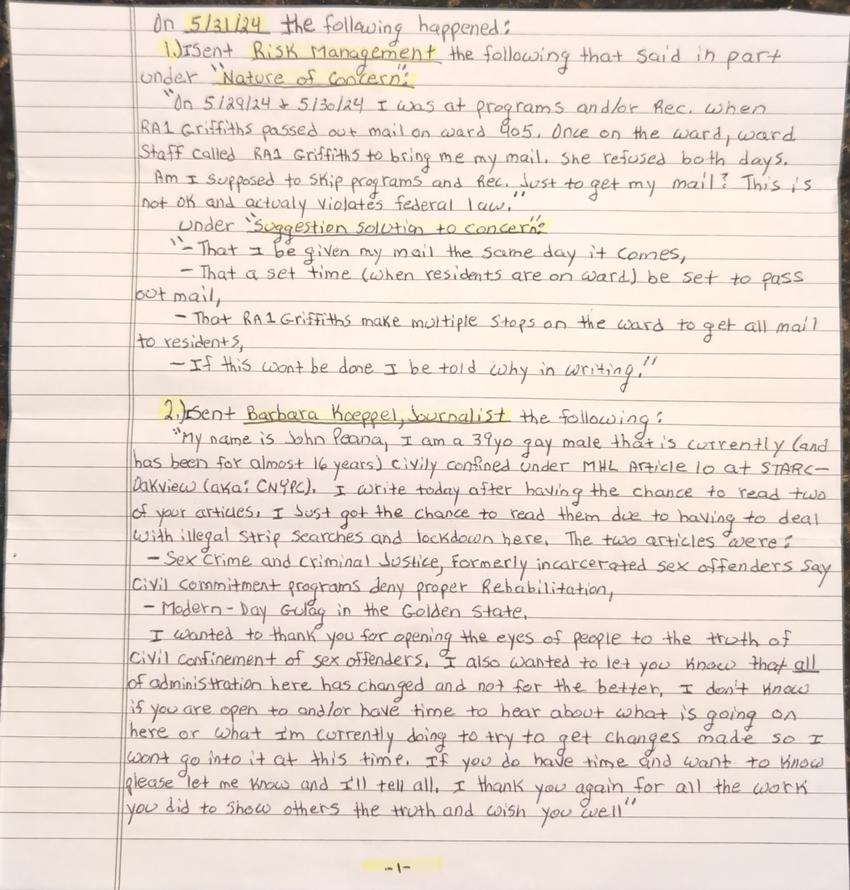 On 5/31/24 the following happened:
1.) I sent Risk Management the following that said in part
under "Nature of Concern":
"On 5/29/24 + 5/30/24 I was at programs and/or Rec. when
RA1 Griffiths passed out mail on ward 905. Once on the ward, ward
Staff called RA1 Griffiths to bring me my mail. She refused both days.
Am I supposed to skip programs and Rec. Just to get my mail? This is
not ok and actualy violates federal law."
under "Suggestion solution to concern":
"- That I be given my mail the same day it comes,
- That a set time (when residents are on ward) be set to pass
out mail,
- That RA1 Griffiths make multiple stops on the ward to get all mail
to residents,
- If this wont be done I be told why in writing."
2.) I sent Barbara Koeppel, Journalist the following:
"My name is John Peana, I am a 39yo gay male that is currently (and
has been for almost 16 years) civily confined under MHL Article 10 at STARC-
Oakview (aka: CNYPC). I write today after having the chance to read two
of your articles. I Just got the chance to read them due to having to deal
with illegal strip searches and lockdown here. The two articles were:
- Sex Crime and Criminal Justice, formerly incarcerated sex offenders say
Civil commitment programs deny proper Rehabilitation,
- Modern-Day Gulag in the Golden State.
I wanted to thank you for opening the eyes of people to the truth of
civil confinement of sex offenders. I also wanted to let you know that all
of administration here has changed and not for the better, I don't know
if you are open to and/or have time to hear about what is going on
here or what I'm currently doing to try to get changes made so I
wont go into it at this time. If you do have time and want to know
please let me know and I'll tell all. I thank you again for all the work
you did to show others the truth and wish you well"
-1-